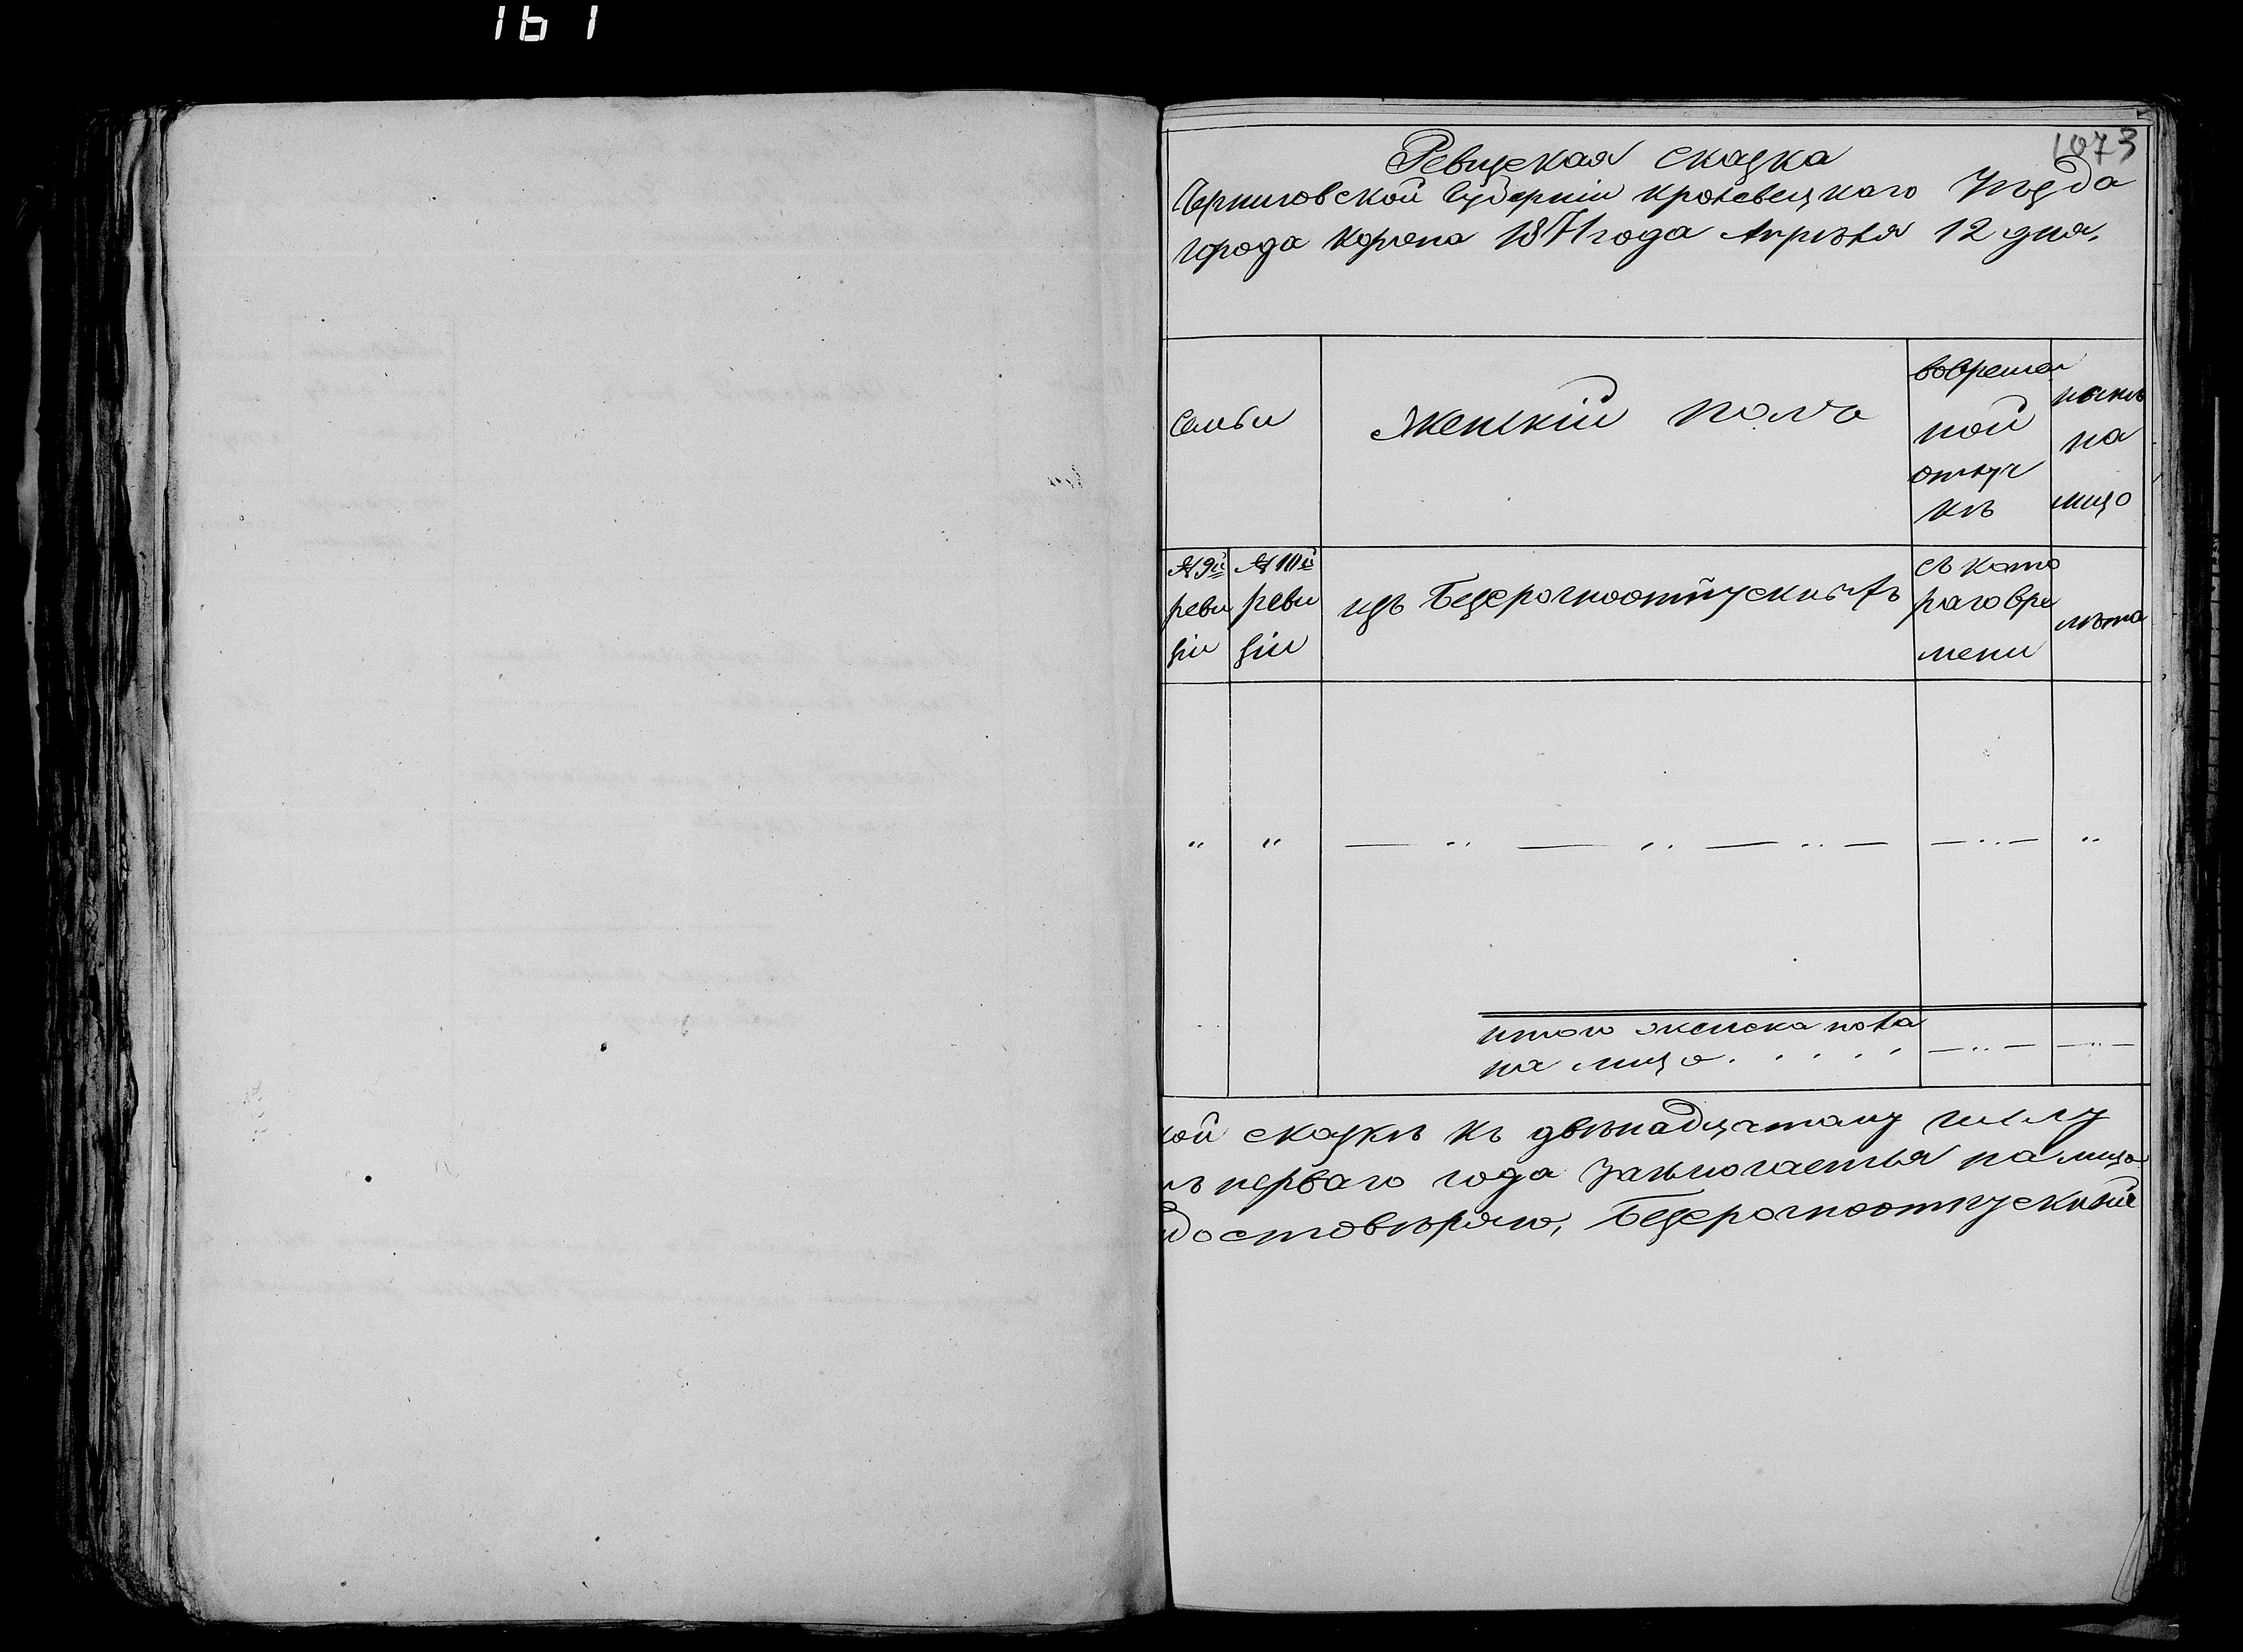 161
1073
Ревизская сказка
Черниговской Губерніи Кролевецкаго Уѣзда
города Коропа 1871 года Апрѣля 12 дня.
Семьи
Женскій полъ
вовремен
ной
отлуч
кѣ
нынѣ
на
лицо
№ 9й
реви
зіи
№ 10й
реви
зіи
изъ Безсрочноотпускныхъ
съ кото
раго вре
мени
лѣта
итого женска пола
на лицо . . . . .
кой сказкѣ къ двѣнадцатому числу
перваго года заключается на лицо
достовѣряю, Безсрочноотпускный